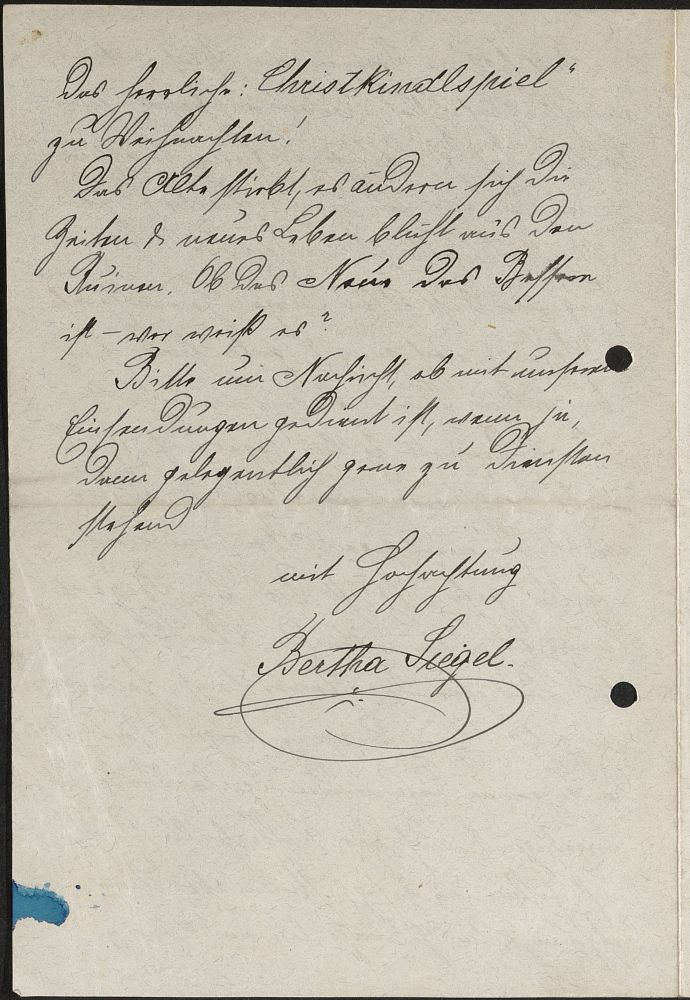 das herrliche: Christkindlspiel“
zu Weihnachten!
Das Alte stirbt, es ändern sich die
Zeiten & neues Leben blüht aus den
Ruinen. Ob das Neue das Bessere
ist – wer weiß es?
Bitte um Nachricht, ob mit unseren
Einsendungen gedient ist, wenn ja,
dann gelegentlich gerne zu Diensten
stehend
mit Hochachtung
Bertha Siegel.